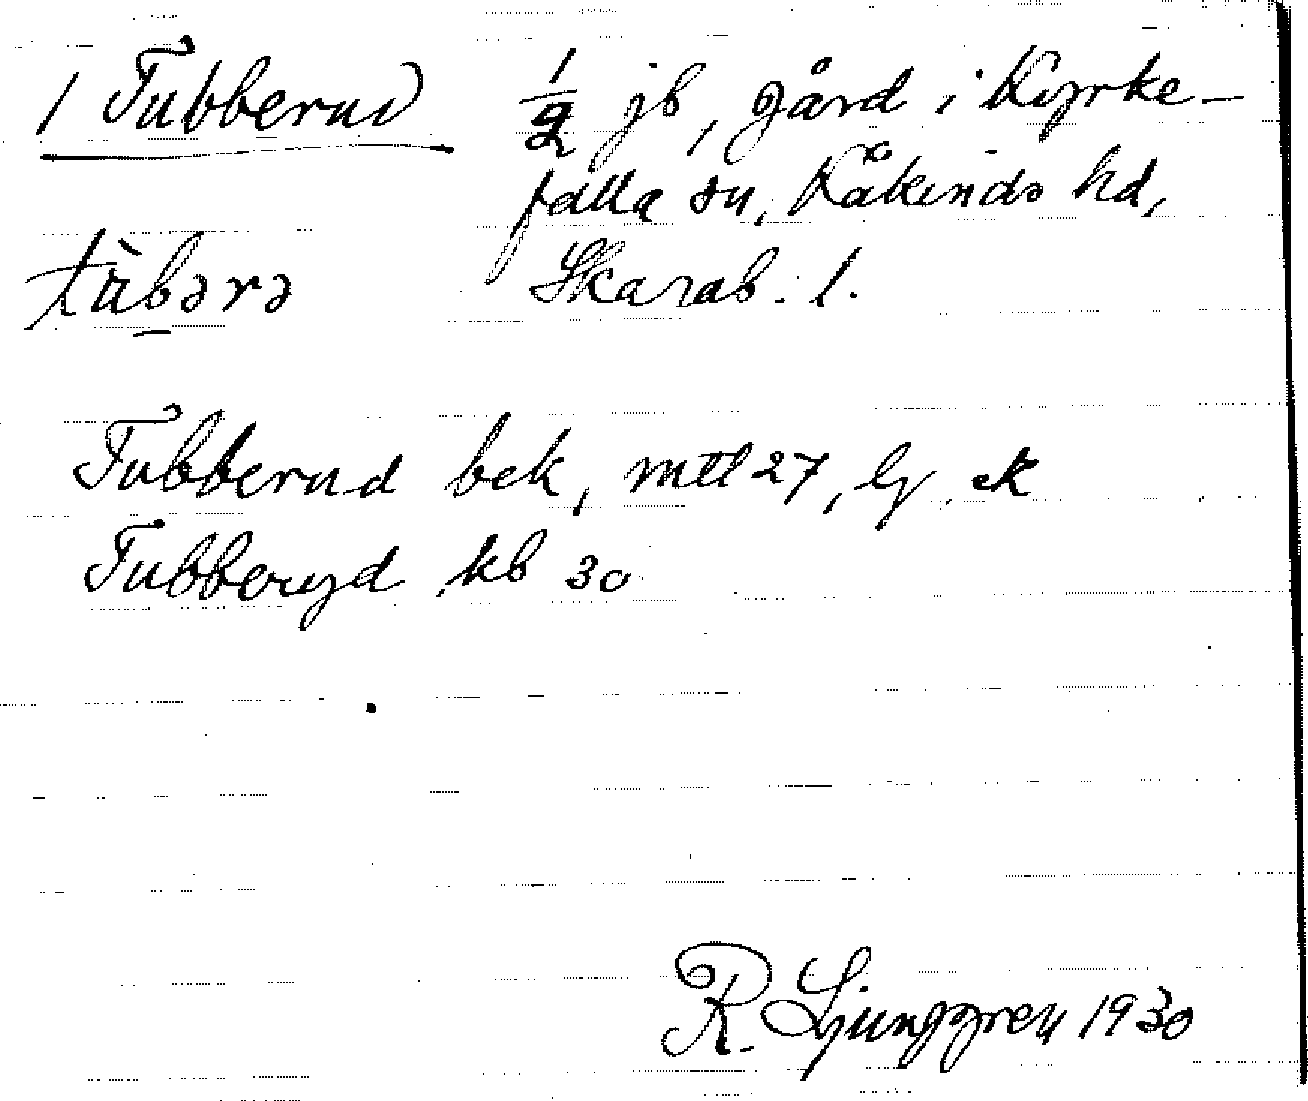 1 Tubberud ½ jb, gård i Kyrke-
falla sn, Kåkinds hd,
tùbərə Skarab. l.
Tubberud bek, mtl 27, lj, ek
Tubberyd kb 30
R. Ljunggren 1930